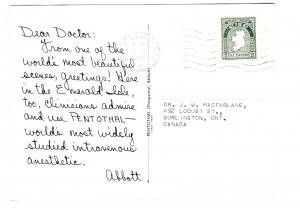 Dear Doctor:
From one of the
world's most beautiful
scenes, greetings! Here
in the Emerald Isle,
too, clinicians admire
and use PENTOTHAL—
world's most widely
studied intravenous
anesthetic.
Abbott
PENTOTHAL (Thiopental, Abbott)
DR. J. W. MACFARLANE,
492 LOCUST ST.,
BURLINGTON, ONT.
CANADA